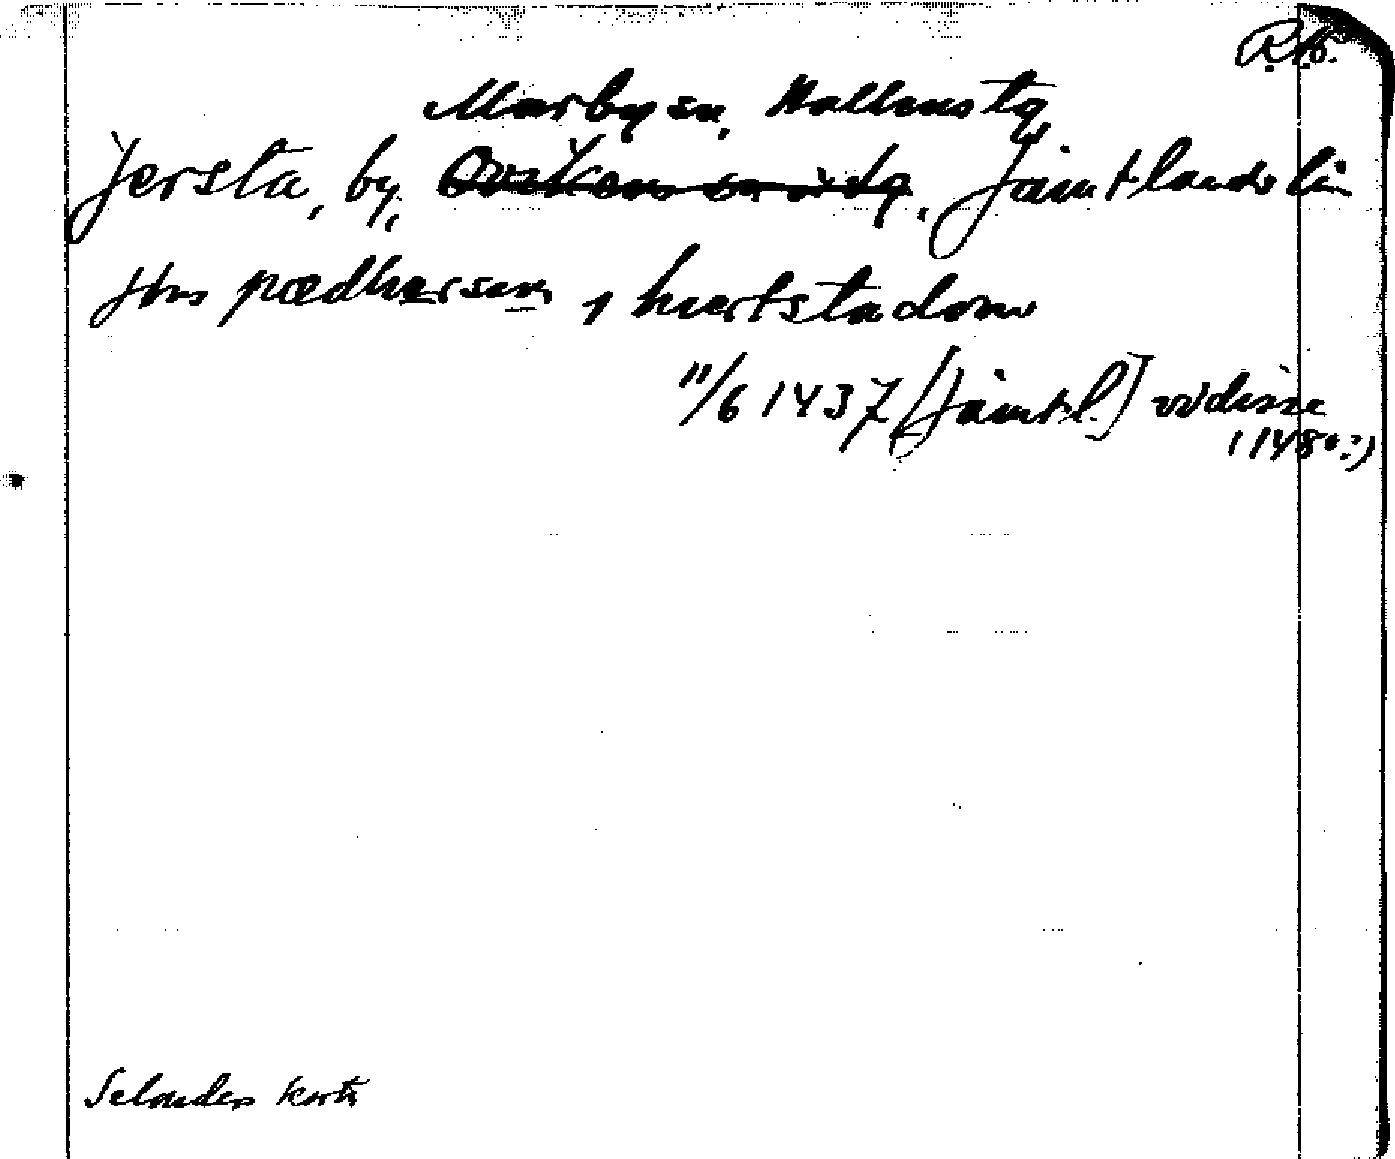 R.A.
Marby sn, Hallens tg
Jersta, by, Ovikens sn o tg, Jämtlands län
Jtms pædhersen, i hiertstadom
11/6 1437 (Jämtl.) vidisse
(1480:)
Selanders kort